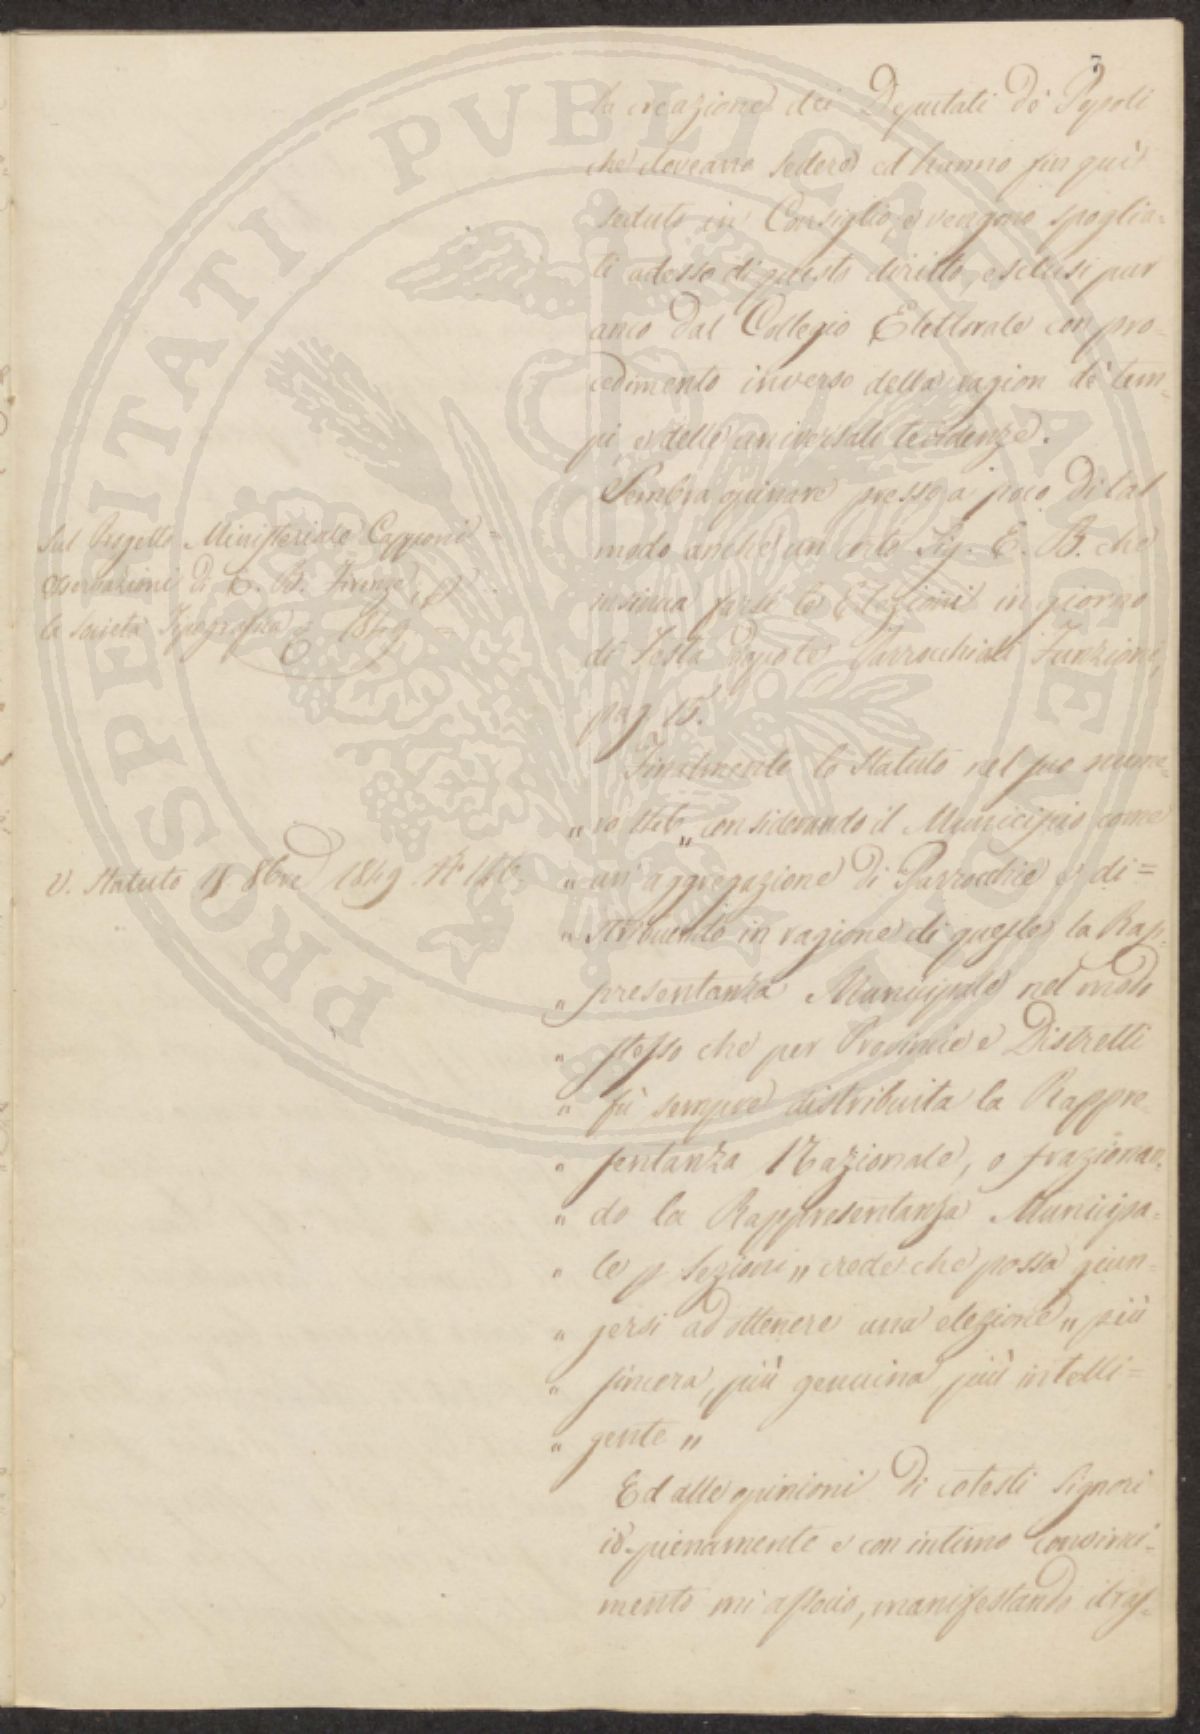 3
la creazione dei Deputati dè Popoli
che doveano sedere ed hanno fin quì
seduto in Consiglio, e vengono spoglia=
ti adesso di questo diritto, esclusi pur
anco dal Collegio Elettorale con pro=
cedimento inverso della ragion dè tem=
pi, e delle universale tendenze.
Sembra opinare presso a poco di tal
modo anche un certo Sig. E. B. che
insinua farsi le Elezioni in giorno
di Festa dopo le Parrocchiali Funzioni,
pag. 15.
Sul Progetto Ministeriale Capponi =
Osservazioni di E. B. Firenze, p
la società Tipografica 1849 =
Finalmente lo Statuto nel suo nume=
„ ro „ considerando il Municipio come
V. Statuto 18 8bre 1849 N° 146.
„ un' aggregazione di Parrocchie e di=
„ stribuendo in ragione di queste la Rap=
„ presentanza Municipale nel modo
„ stesso che per Provincie e Distretti
„ fù sempre distribuita la Rappre
„ sentanza Nazionale, o frazionan=
„ do la Rappresentanza Municipa=
„ le p Sezioni „ crede che possa giun=
„ gersi ad ottenere una elezione „ più
„ sincera, più genuina, più intelli=
„ gente „
Ed alle opinioni di cotesti Signori
io pienamente e con intimo convinci=
mento mi associo, manifestando il ras=
PROSPERITATI PUBLICAE AUGENDAE